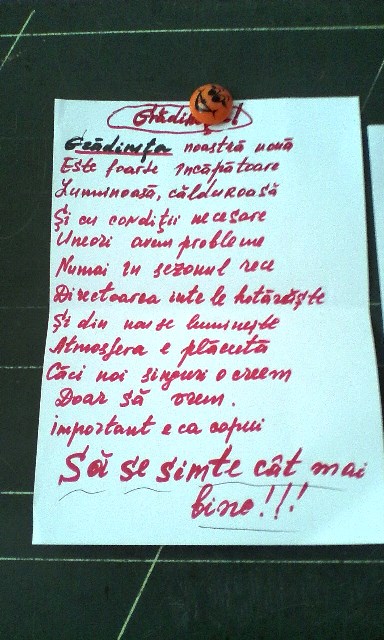 Grădinița noastră nouă
Este foarte încăpătoare
Luminoasă, călduroasă
Și cu condiții necesare
Uneori avem probleme
Numai în sezonul rece
Directoarea
Și din nou se luminește
Atmosfera e plăcută
Căci noi singuri o creem
Doar să vrem.
important e ca copiii
Să se simte cât mai
bine!!!